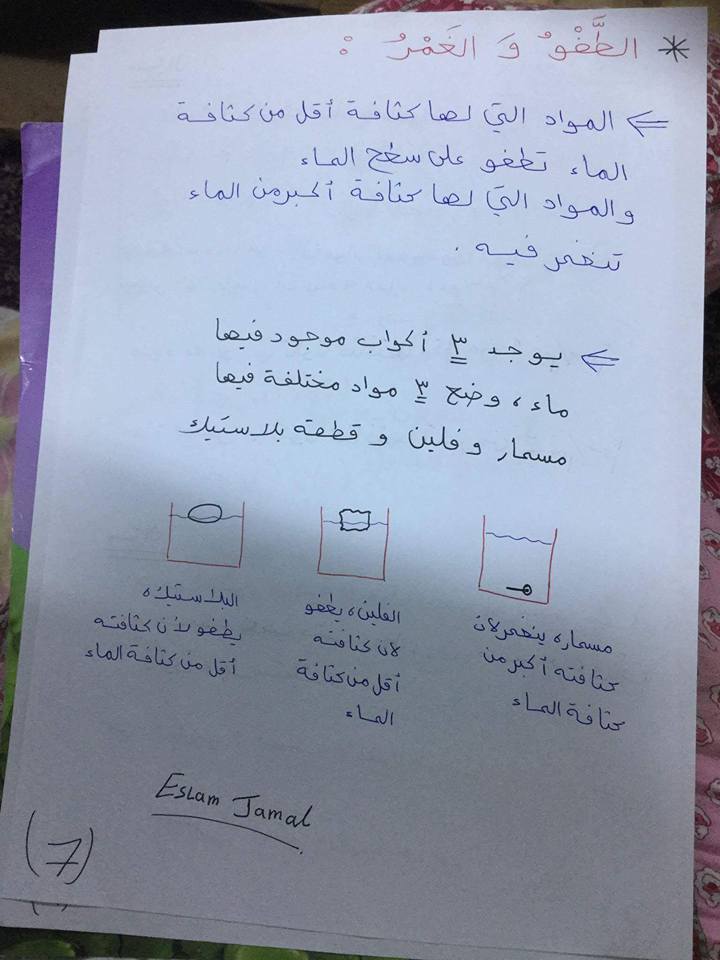 * الطَّفْوُ وَ الغَمْرُ :
⇐ المواد التي لها كثافة أقل من كثافة
الماء تطفو على سطح الماء
والمواد التي لها كثافة أكبر من الماء
تنغمر فيه .
⇐ يوجد ٣ أكواب موجود فيها
ماء ، وضع ٣ مواد مختلفة فيها
مسمار و فلين و قطعة بلاستيك
مسمار، ينغمر لان
كثافته أكبر من
كثافة الماء
الفلين، يطفو
لان كثافته
أقل من كثافة
الماء
البلاستيك،
يطفو لأن كثافته
أقل من كثافة الماء
Eslam Jamal
(7)